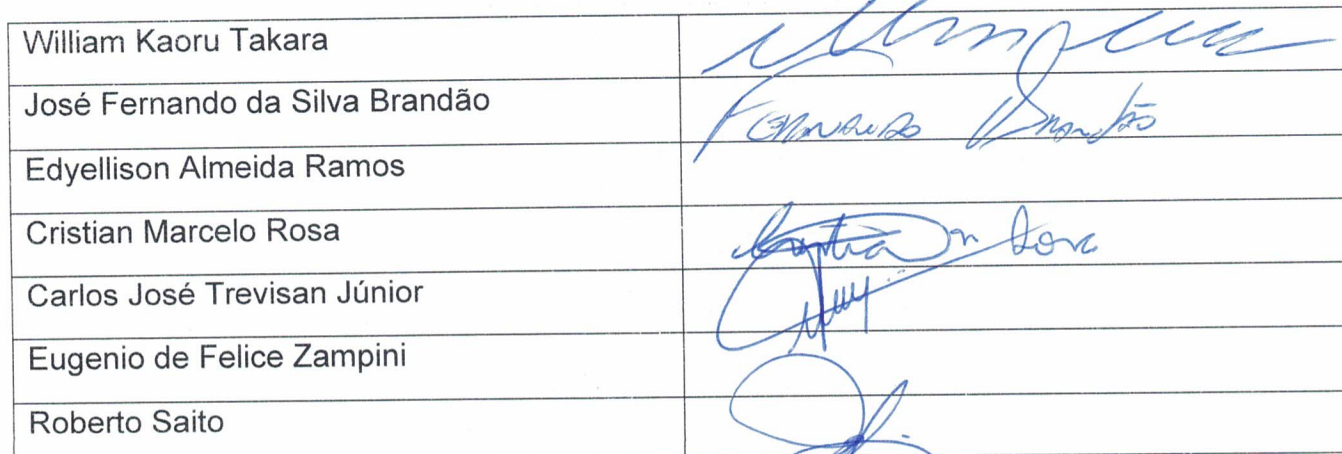 William Kaoru Takara
José Fernando da Silva Brandão
Fernando Brandão
Edyellison Almeida Ramos
Cristian Marcelo Rosa
Carlos José Trevisan Júnior
Eugenio de Felice Zampini
Roberto Saito